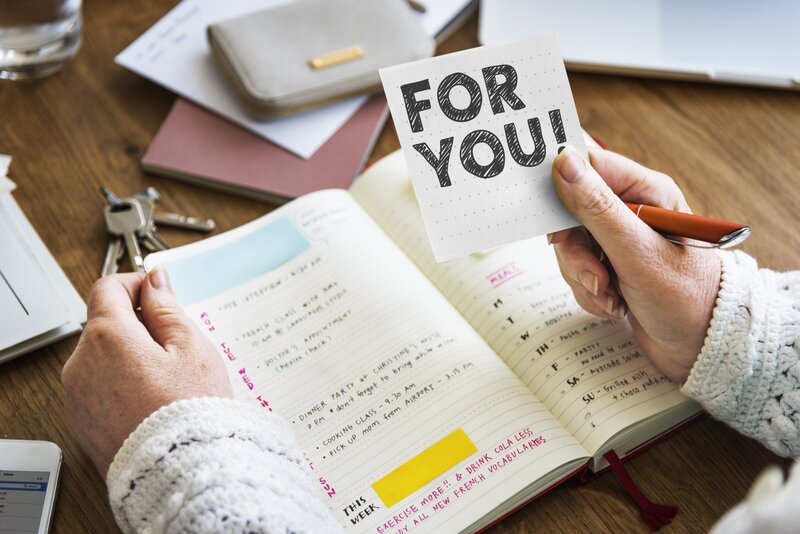 FOR
YOU!
JOB INTERVIEW - 6:30 PM
MON
TUE
WED
- FRENCH CLASS WITH AMY
10 AM @ LANGUAGE STUDY
- DOCTOR'S APPOINTMENT
(health check)
- DINNER PARTY at CHRISTINE'S HOUSE
7 PM * don't forget to bring white wine
- COOKING CLASS - 9.30 AM
- PICK UP mom from AIRPORT - 3.15 PM
SUN
THIS
WEEK
EXERCISE MORE!! & DRINK COLA LESS
ALL NEW FRENCH VOCABULARIES
MEALS
M
T
W
TH
F - PARTY
no need to cook
SA - Avocado salad
SU - Grilled fish
+ choco pudding